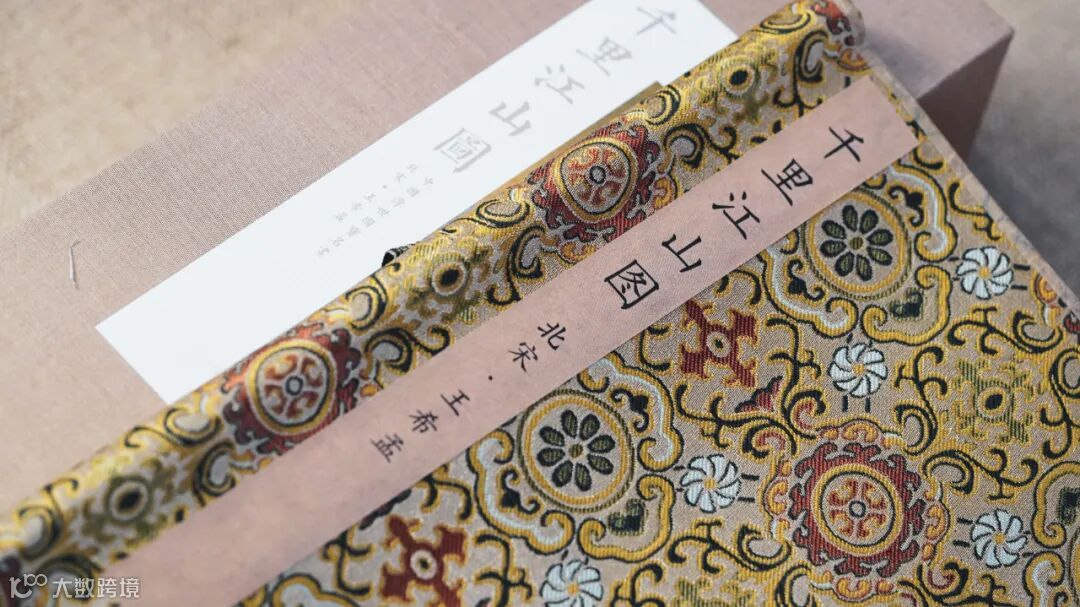 千里江山圖
中國傳世國寶名畫
北宋·王希孟
千里江山图
北宋·王希孟
大数跨境